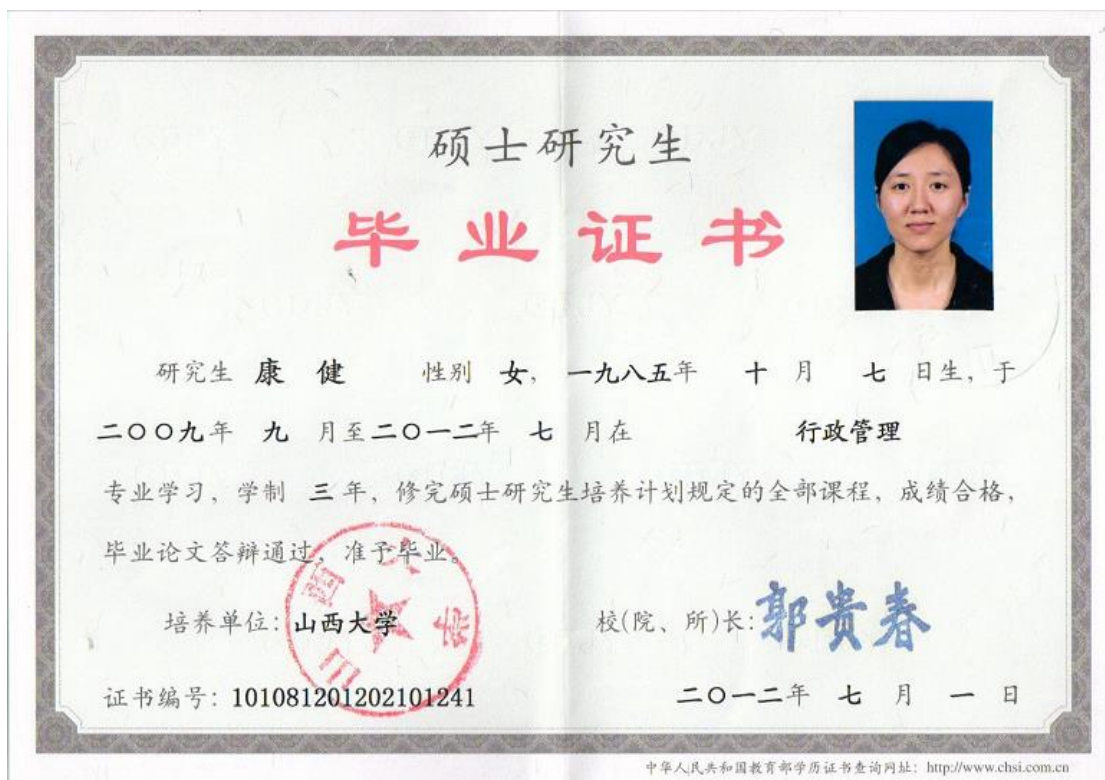 硕士研究生
毕业证书
研究生 康 健 性别 女，一九八五年 十 月 七 日生，于
二〇〇九年 九 月至二〇一二年 七 月在 行政管理
专业学习，学制 三 年，修完硕士研究生培养计划规定的全部课程，成绩合格，
毕业论文答辩通过，准予毕业。
培养单位：山西大学
校(院、所)长：郭贵春
证书编号：101081201202101241
二〇一二年 七 月 一 日
山西大学
中华人民共和国教育部学历证书查询网址：http://www.chsi.com.cn